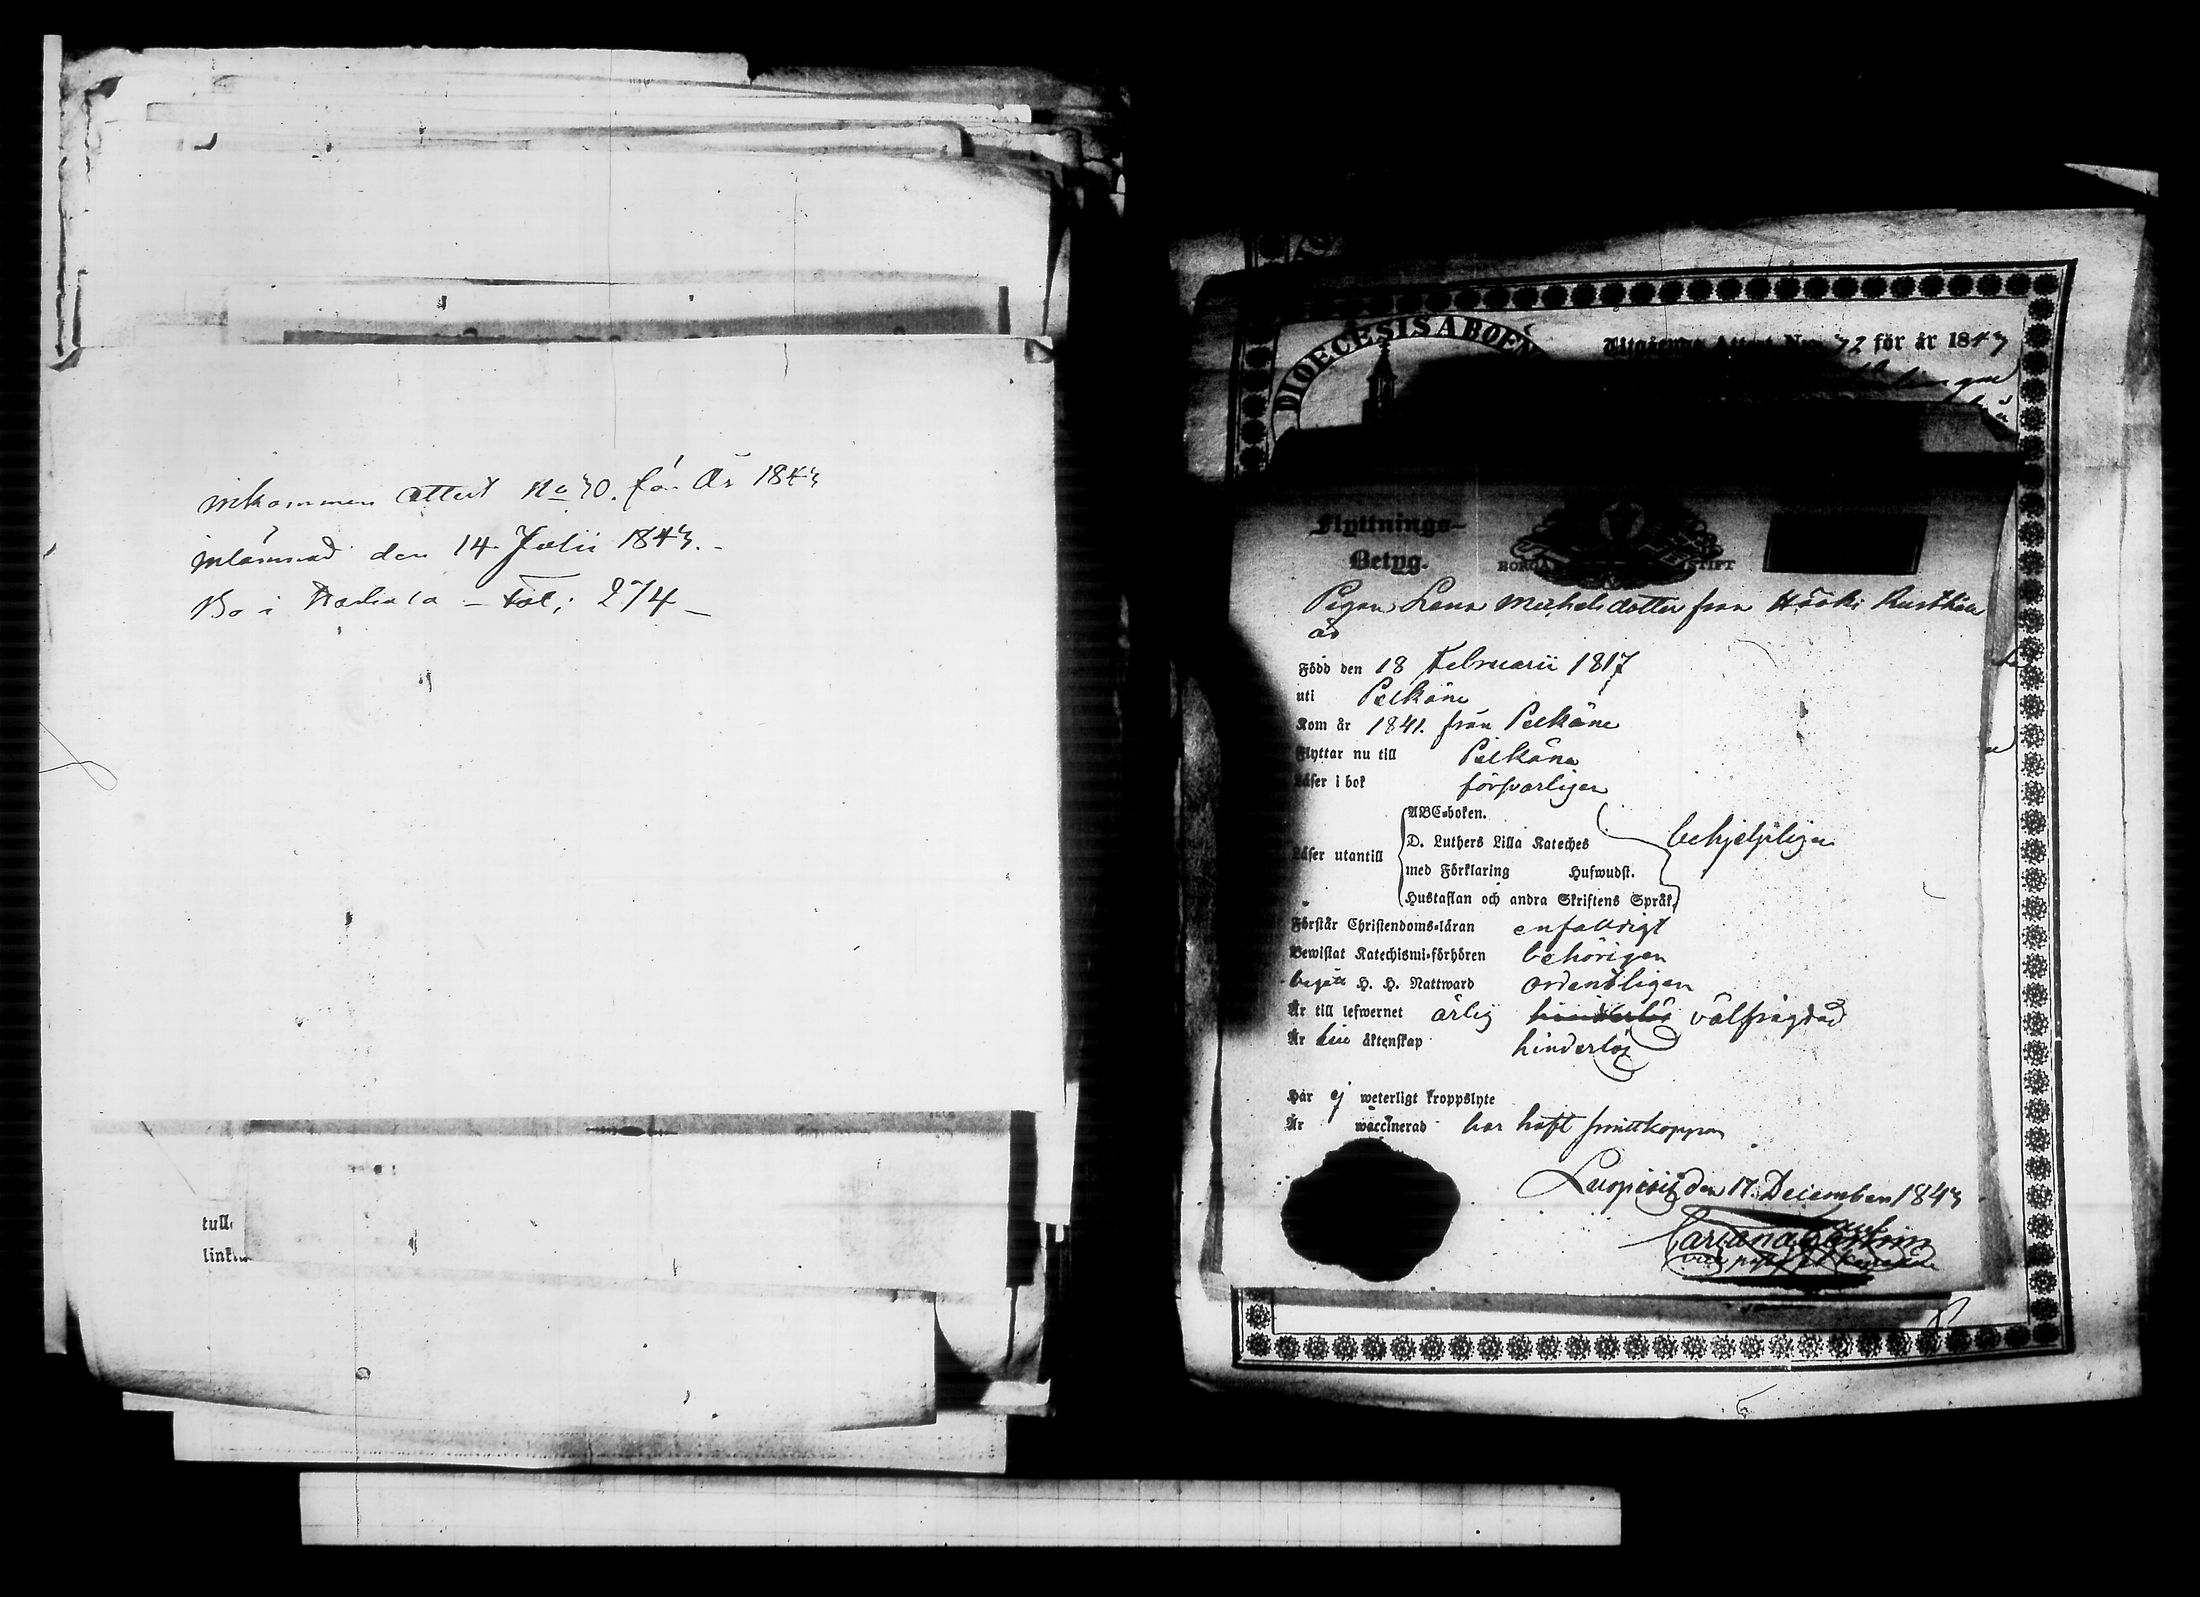 inkommen attest No 30. för År 1843
inlämnad den 14 Julii 1843.
Bo i – Fol; 274 –
tull
DIOECESIS ABOËN
Utgående Attest Nro 72 för år 1843
Flyttnings-
Betyg.
BORGÅ STIFT
Pigan Lena Michelsdotter från Hööki Rusthåll
Född den 18 Februarii 1817
uti Pelkäne
Kom år 1841. från Pelkäne
Flyttar nu till Pelkäne
Läser i bok försvarligen
ABC-boken.
D. Luthers Lilla Kateches
Läser utantill behjelpligen
med Förklaring Hufwudst.
Hustaflan och andra Skriftens Språk.
Förstår Christendoms-läran enfaldigt
Bewistat Katechismi-förhören behörigen
begått H. H. Nattward ordentligen
Är till lefwernet ärlig hinderlös välfrägdad
Är till äktenskap hinderlös
Har ej weterligt kroppslyte
Är waccinerad har haft smittkoppor
Luopiois den 17. December 1843